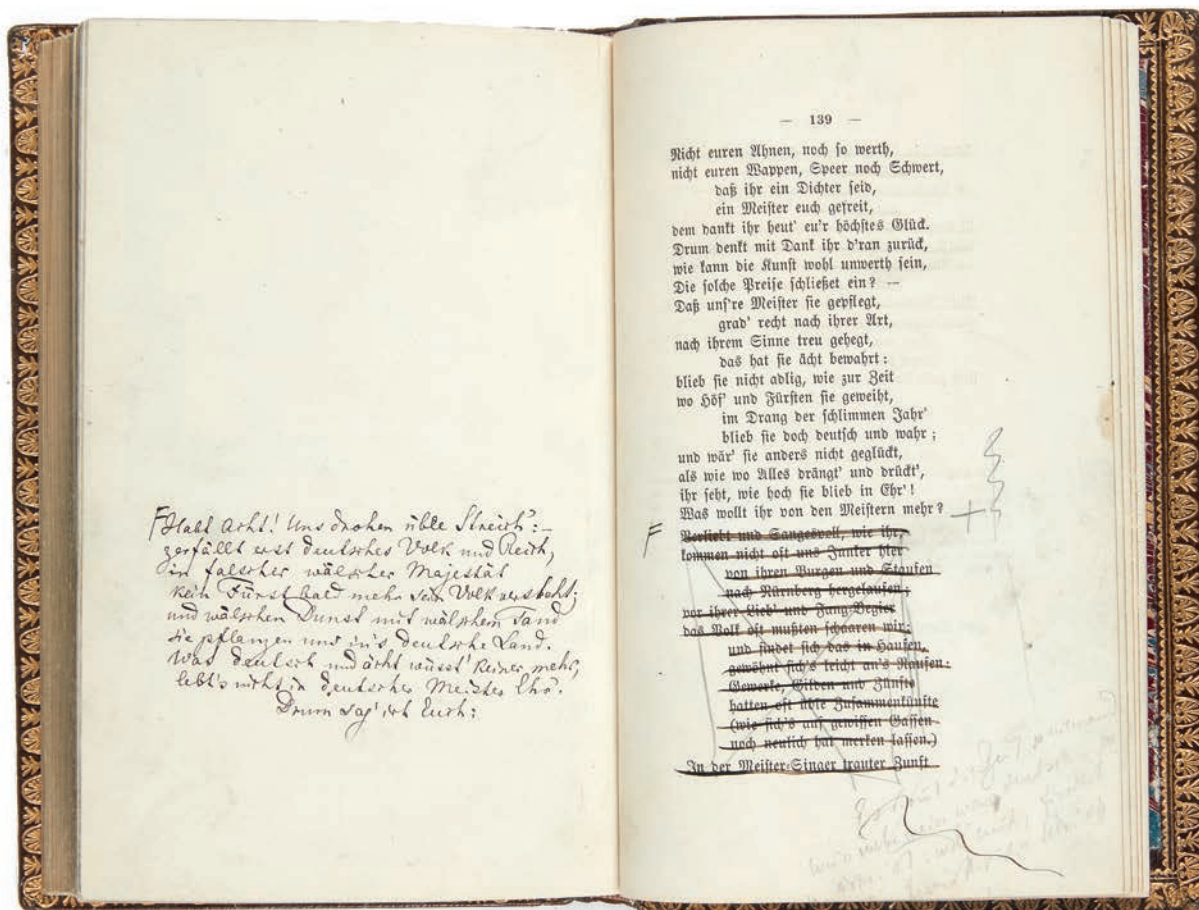 Habt Acht! Uns drohen üble Streich': –
zerfällt erst deutsches Volk und Reich,
in falscher wälscher Majestät
kein Fürst bald mehr sein Volk versteht;
und wälschen Dunst mit wälschem Tand
sie pflanzen uns in's deutsche Land.
Was deutsch und ächt wüsst' keiner mehr,
lebt's nicht in deutscher Meister Ehr'.
Drum sag' ich Euch:
— 139 —
Nicht euren Ahnen, noch so werth,
nicht euren Wappen, Speer noch Schwert,
daß ihr ein Dichter seid,
ein Meister euch gefreit,
dem dankt ihr heut' eu'r höchstes Glück.
Drum denkt mit Dank ihr d'ran zurück,
wie kann die Kunst wohl unwerth sein,
Die solche Preise schließet ein? —
Daß uns're Meister sie gepflegt,
grad' recht nach ihrer Art,
nach ihrem Sinne treu gehegt,
das hat sie ächt bewahrt:
blieb sie nicht adlig, wie zur Zeit
wo Höf' und Fürsten sie geweiht,
im Drang der schlimmen Jahr'
blieb sie doch deutsch und wahr;
und wär' sie anders nicht geglückt,
als wie wo Alles drängt' und drückt',
ihr seht, wie hoch sie blieb in Ehr'!
Was wollt ihr von den Meistern mehr?
Verliebt und Sangesvoll, wie ihr,
kommen nicht oft uns Junker hier
von ihren Burgen und Staufen
nach Nürnberg hergelaufen;
vor ihrer Lieb' und Fang-Begier
das Volk oft mußten schaaren wir;
und findet sich das in Haufen,
gewöhnt sich's leicht an's Raufen:
Gewerke, Gilden und Zünfte
hatten oft üble Zusammenkünfte
(wie sich's auf gewissen Gassen
noch neulich hat merken lassen.)
In der Meister-Singer trauter Zunft